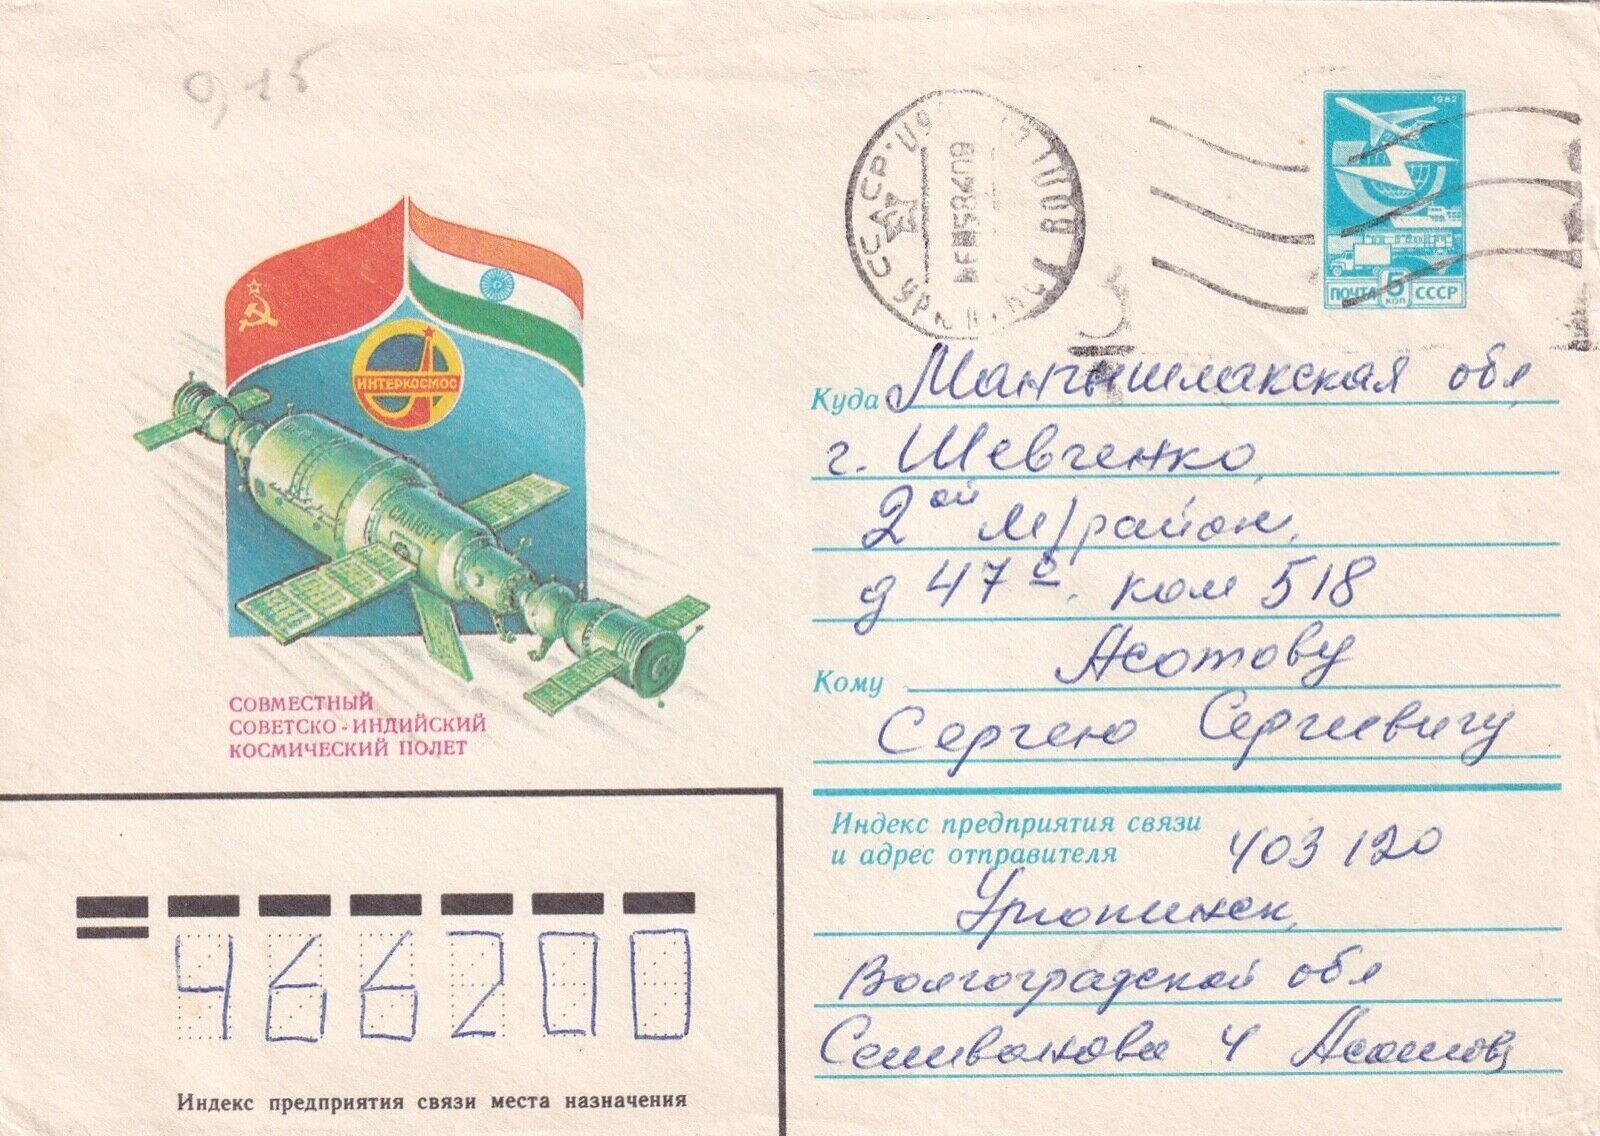 9,15
СССР
1982
ПОЧТА 5 КОП СССР
ИНТЕРКОСМОС
САЛЮТ-7
СОВМЕСТНЫЙ
СОВЕТСКО-ИНДИЙСКИЙ
КОСМИЧЕСКИЙ ПОЛЕТ
Куда Мангышлакская обл
г. Шевченко
2ой м/район,
д 47 ком 518
Кому Асотову
Сергею Сергеевичу
Индекс предприятия связи
и адрес отправителя 403120
Урюпинск,
Волгоградской обл
Селиванова 4
466200
Индекс предприятия связи места назначения